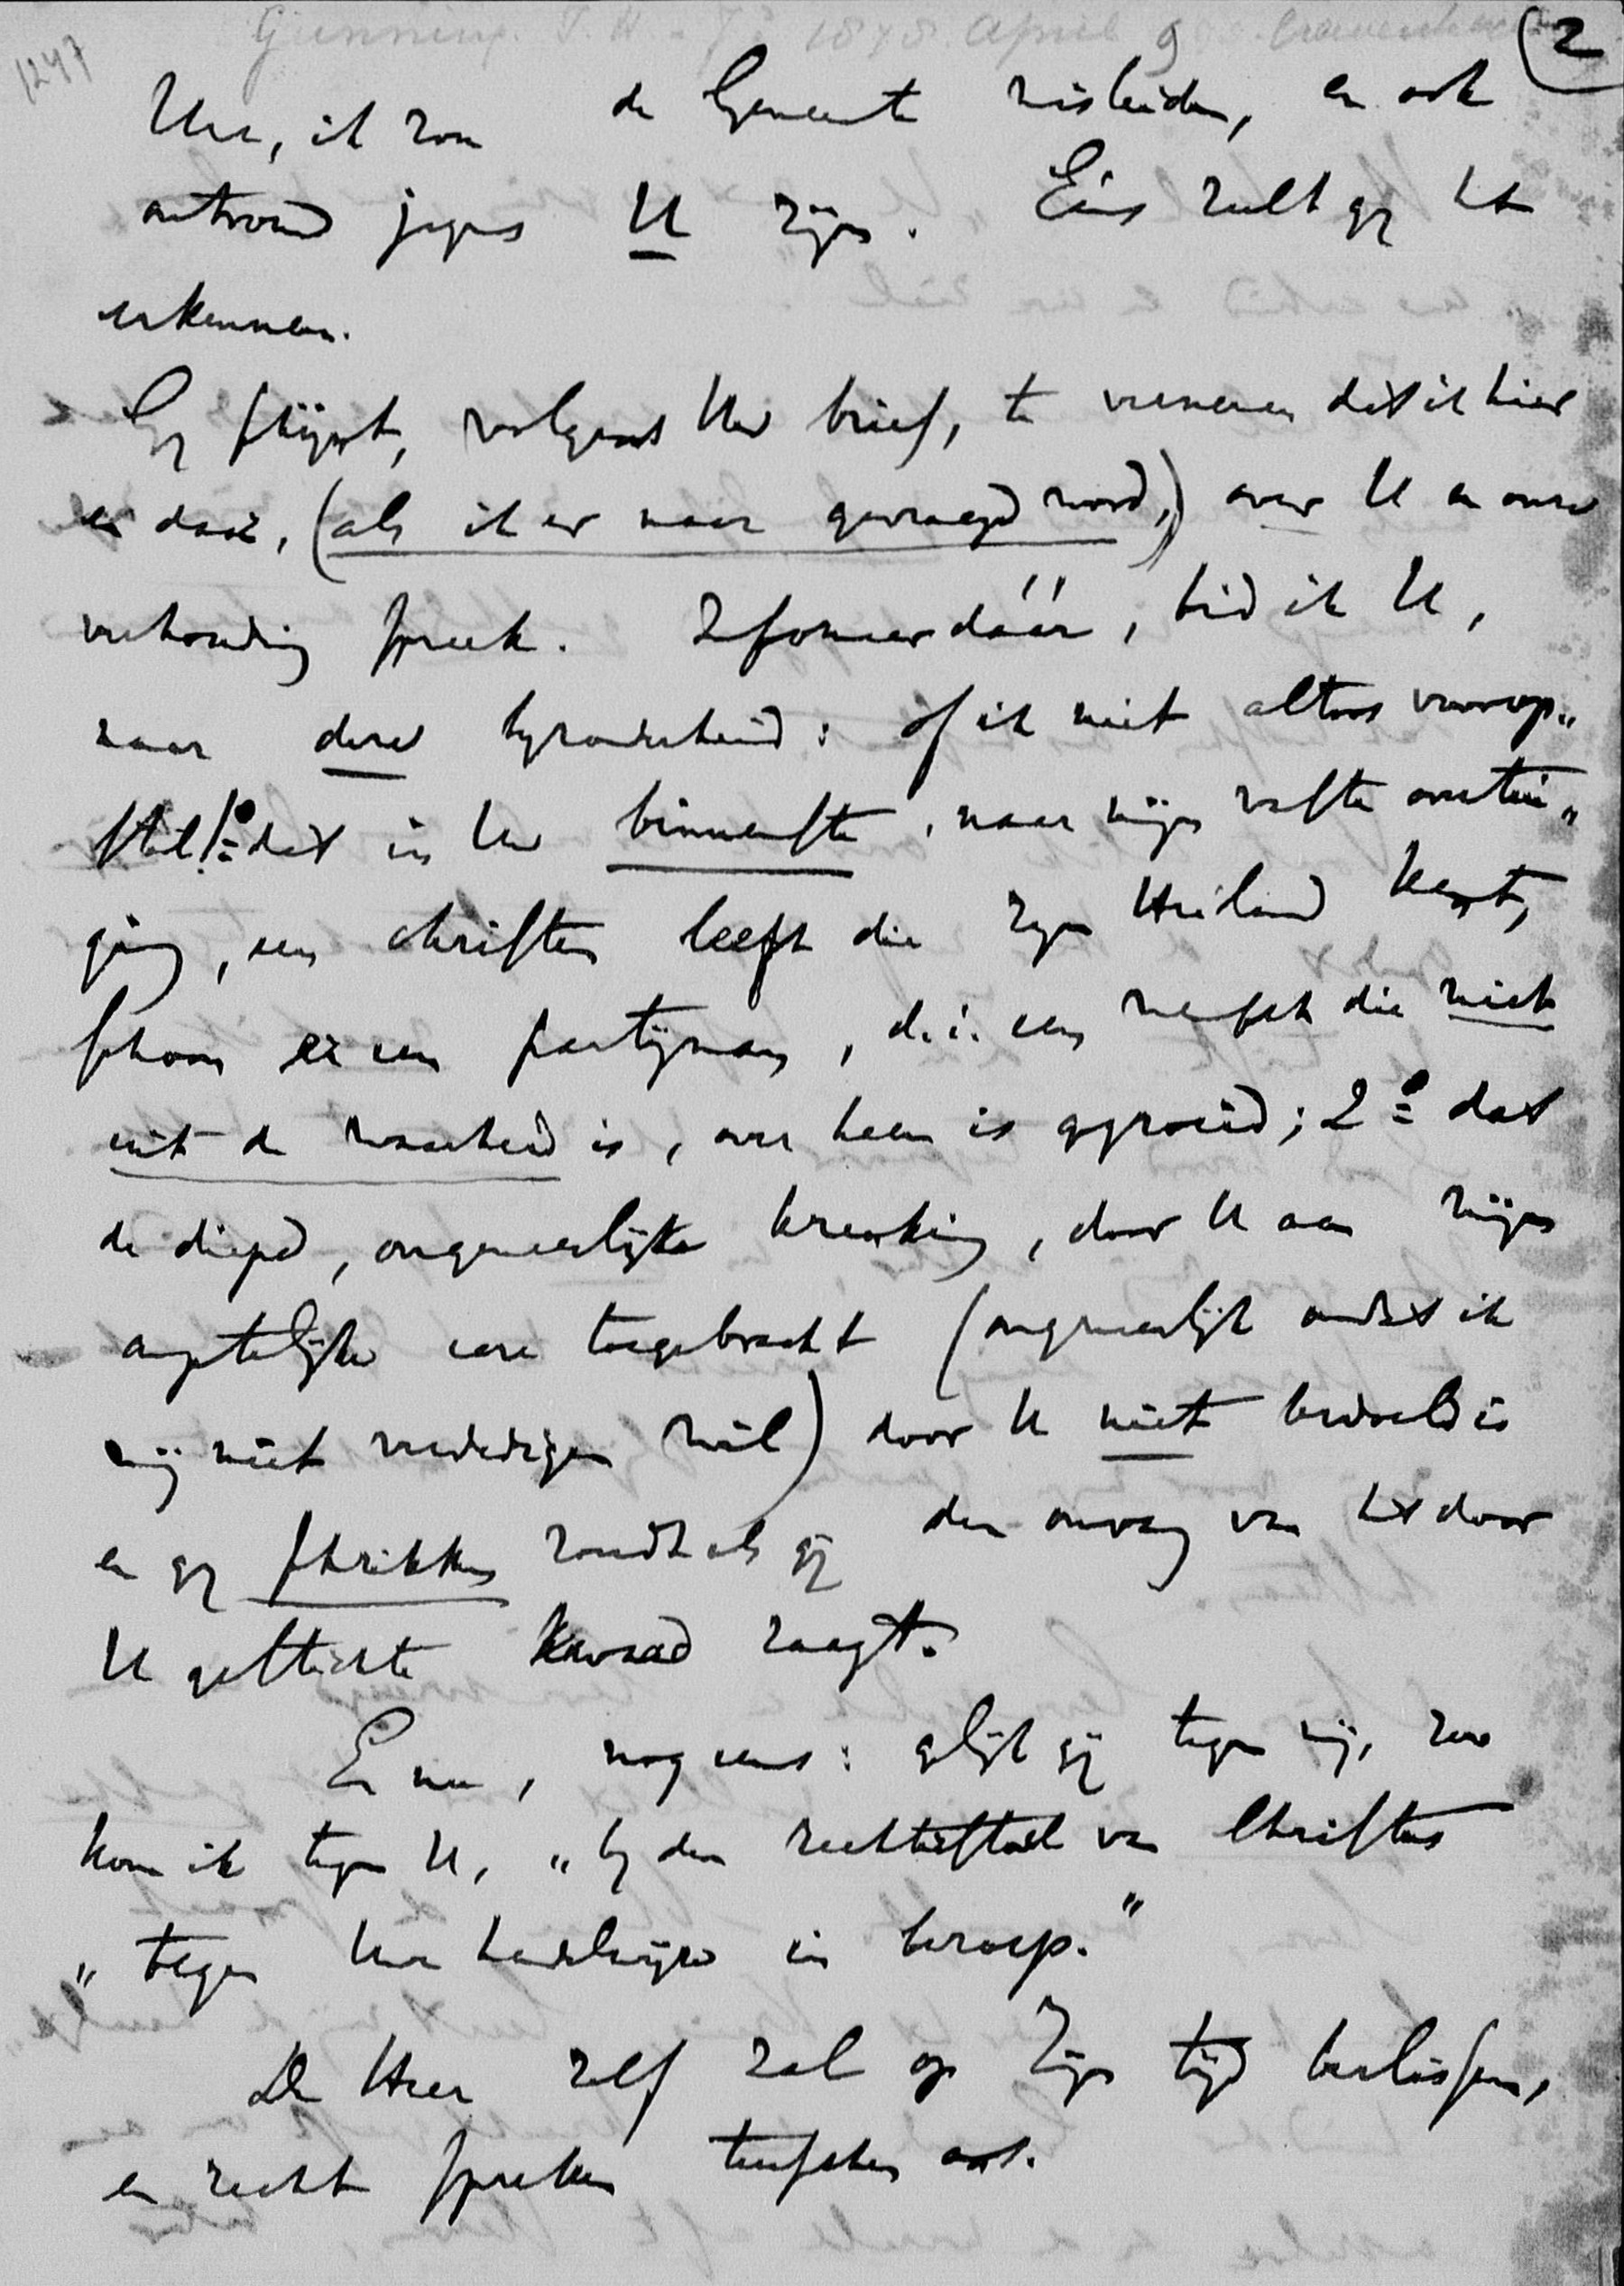 Gunning. J. H. - Jr 1878. April 9
1247
2
Uwe, ik zou de Gemeente misleiden, en ook
ontrouw jegens U zijn. Eens zult gij het
erkennen.
Gij schijnt, volgens Uw brief, te vernemen dat ik hier
en daar, (als ik er naar gevraagd word,) over U en onze
verhouding spreek. Informeer dáár, bid ik U,
naar deze bijzonderheid: of ik niet altoos voorop„
stel 1º dat in Uw binnenste, naar mijn vaste overtui„
ging, een christen leeft die zijn Heiland kent,
schoon er een partijman, d.i. een mensch die niet
uit de waarheid is, over heen is gegroeid; 2º dat
de diepe, ongeneeslijke krenking, door U aan mijn
ambtelijke eere toegebracht (ongeneeslijk omdat ik
mij niet verdedigen wil) door U niet bedoeld is
en gij schrikken zoudt als gij den omvang van het door
U gestichte kwaad zaagt.
En nu, nog eens: blijft gij tegen mij, zoo
kom ik tegen U, „bij den rechterstoel van Christus
„tegen Uwe handelwijze in beroep."
De Heer zelf zal op Zijn tijd beslissen,
en recht spreken tusschen ons.